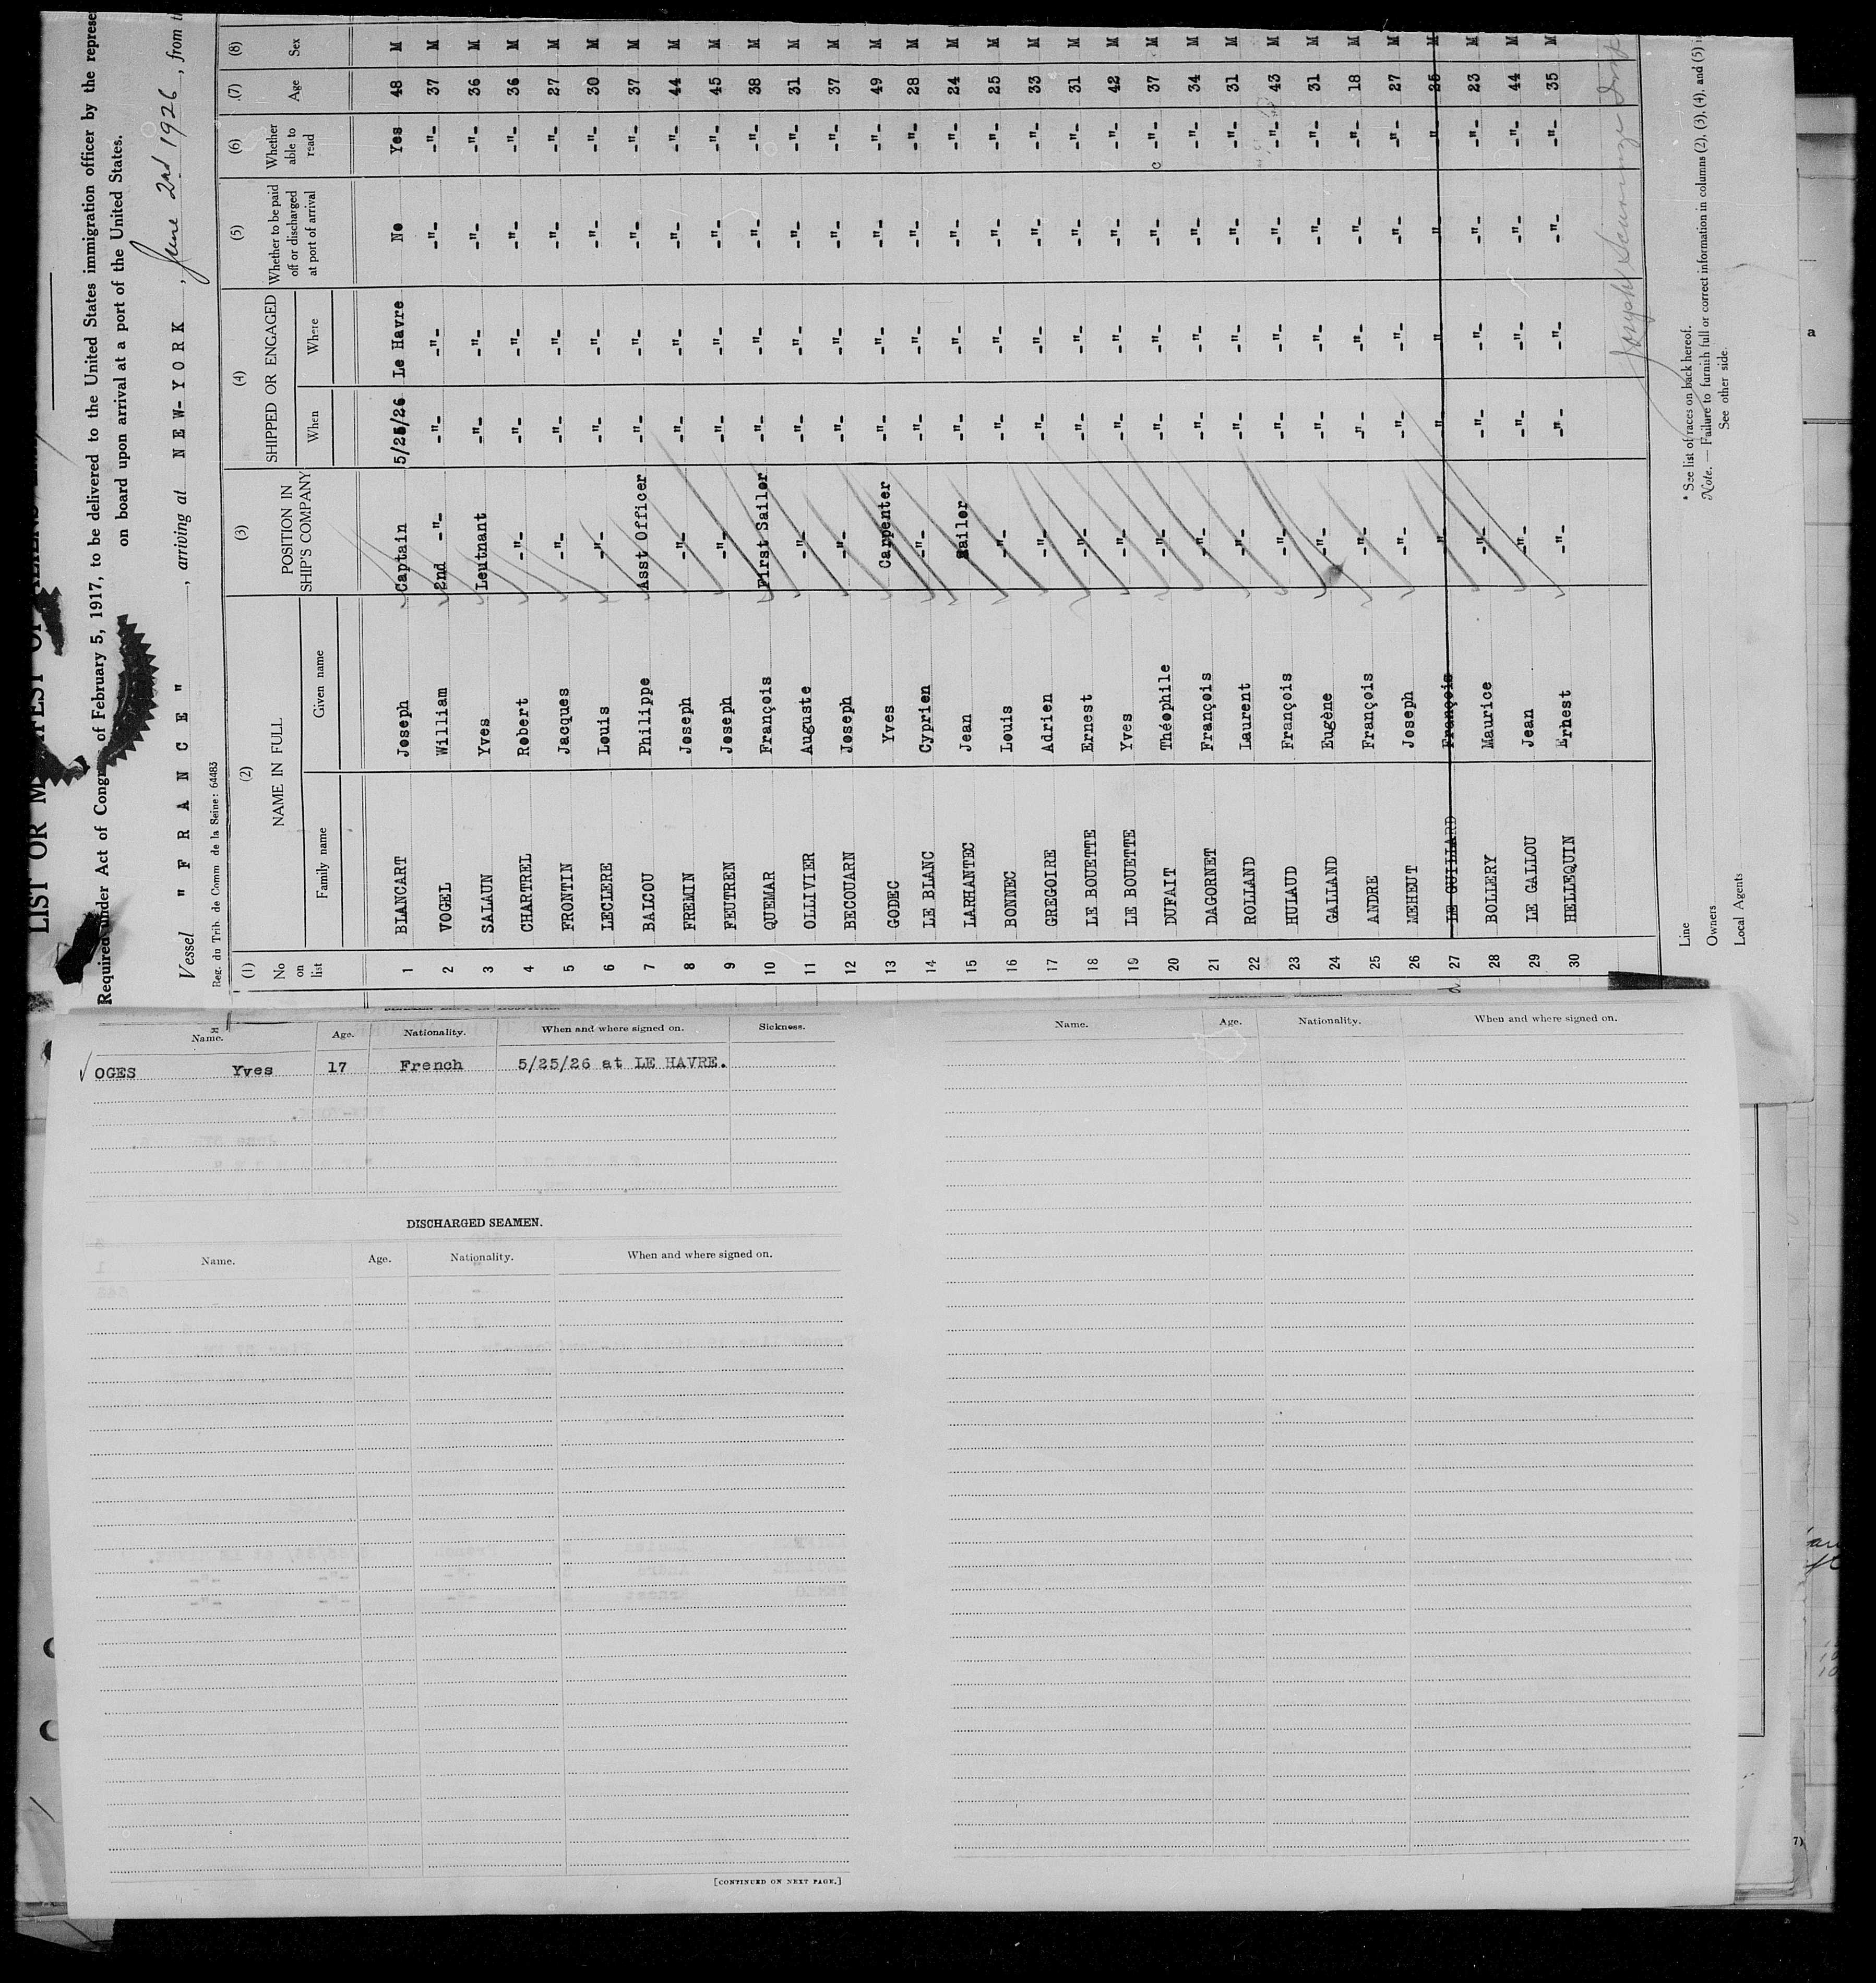 LIST OR MANIFEST OF ALIENS
Required under Act of Congress of February 5, 1917, to be delivered to the United States immigration officer by the repres
on board upon arrival at a port of the United States.
Vessel " F R A N C E " , arriving at N E W - Y O R K , June 2nd 1926, from
Reg. du Trib. de Comm de la Seine: 64483
(1) (2) (3) (4) (5) (6) (7) (8)
No on list NAME IN FULL POSITION IN SHIP'S COMPANY SHIPPED OR ENGAGED Whether to be paid off or discharged at port of arrival Whether able to read Age Sex
Family name Given name When Where
1 BLANCART Joseph Captain 5/25/26 Le Havre No Yes 48 M
2 VOGEL William 2nd -"- -"- -"- -"- -"- 37 M
3 SALAUN Yves Leutnant -"- -"- -"- -"- 36 M
4 CHARTREL Robert -"- -"- -"- -"- -"- 36 M
5 FRONTIN Jacques -"- -"- -"- -"- -"- 27 M
6 LECLERE Louis -"- -"- -"- -"- -"- 30 M
7 BALCOU Philippe Asst Officer -"- -"- -"- -"- 37 M
8 FREMIN Joseph -"- -"- -"- -"- -"- 44 M
9 FEUTREN Joseph -"- -"- -"- -"- -"- 45 M
10 QUEMAR François First Sailor -"- -"- -"- -"- 38 M
11 OLLIVIER Auguste -"- -"- -"- -"- -"- 31 M
12 BECOUARN Joseph -"- -"- -"- -"- -"- 37 M
13 GODEC Yves Carpenter -"- -"- -"- -"- 49 M
14 LE BLANC Cyprien -"- -"- -"- -"- -"- 28 M
15 LARHANTEC Jean Sailor -"- -"- -"- -"- 24 M
16 BONNEC Louis -"- -"- -"- -"- -"- 25 M
17 GREGOIRE Adrien -"- -"- -"- -"- -"- 33 M
18 LE BOUETTE Ernest -"- -"- -"- -"- -"- 31 M
19 LE BOUETTE Yves -"- -"- -"- -"- -"- 42 M
20 DUFAIT Théophile -"- -"- -"- -"- -"- 37 M
21 DAGORNET François -"- -"- -"- -"- -"- 34 M
22 ROLLAND Laurent -"- -"- -"- -"- -"- 31 M
23 HULAUD François -"- -"- -"- -"- -"- 43 M
24 GALLAND Eugène -"- -"- -"- -"- -"- 31 M
25 ANDRE François -"- -"- -"- -"- -"- 18 M
26 MEHEUT Joseph -"- -"- -"- -"- -"- 27 M
27 LE GUILLARD François -"- -"- -"- -"- -"- 25 M
28 BOLLERY Maurice -"- -"- -"- -"- -"- 23 M
29 LE GALLOU Jean -"- -"- -"- -"- -"- 44 M
30 HELLEQUIN Ernest -"- -"- -"- -"- -"- 35 M
Line
Owners
Local Agents
* See list of races on back hereof.
Note. — Failure to furnish full or correct information in columns (2), (3), (4), and (5) i
See other side.
Name. Age. Nationality. When and where signed on. Sickness.
OGES Yves 17 French 5/25/26 at LE HAVRE.
DISCHARGED SEAMEN.
Name. Age. Nationality. When and where signed on.
[CONTINUED ON NEXT PAGE.]
Name. Age. Nationality. When and where signed on.